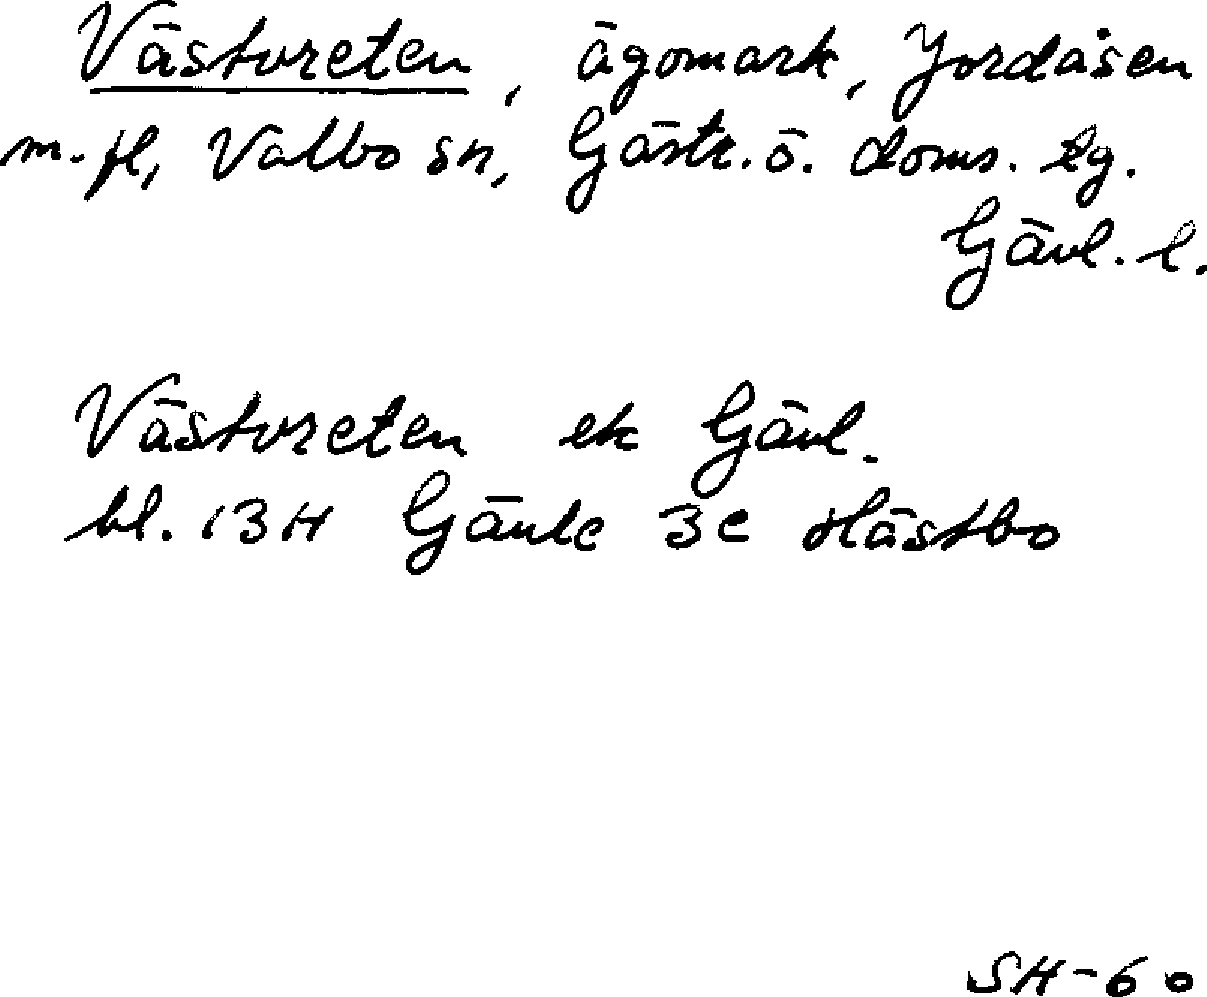 Västvreten, ägomark, Jordåsen
m.fl, Valbo sn, Gästr. ö. doms. tg.
Gävl. l.
Västvreten ek Gävl.
bl. 13H Gävle 3c Hästbo
SH-60